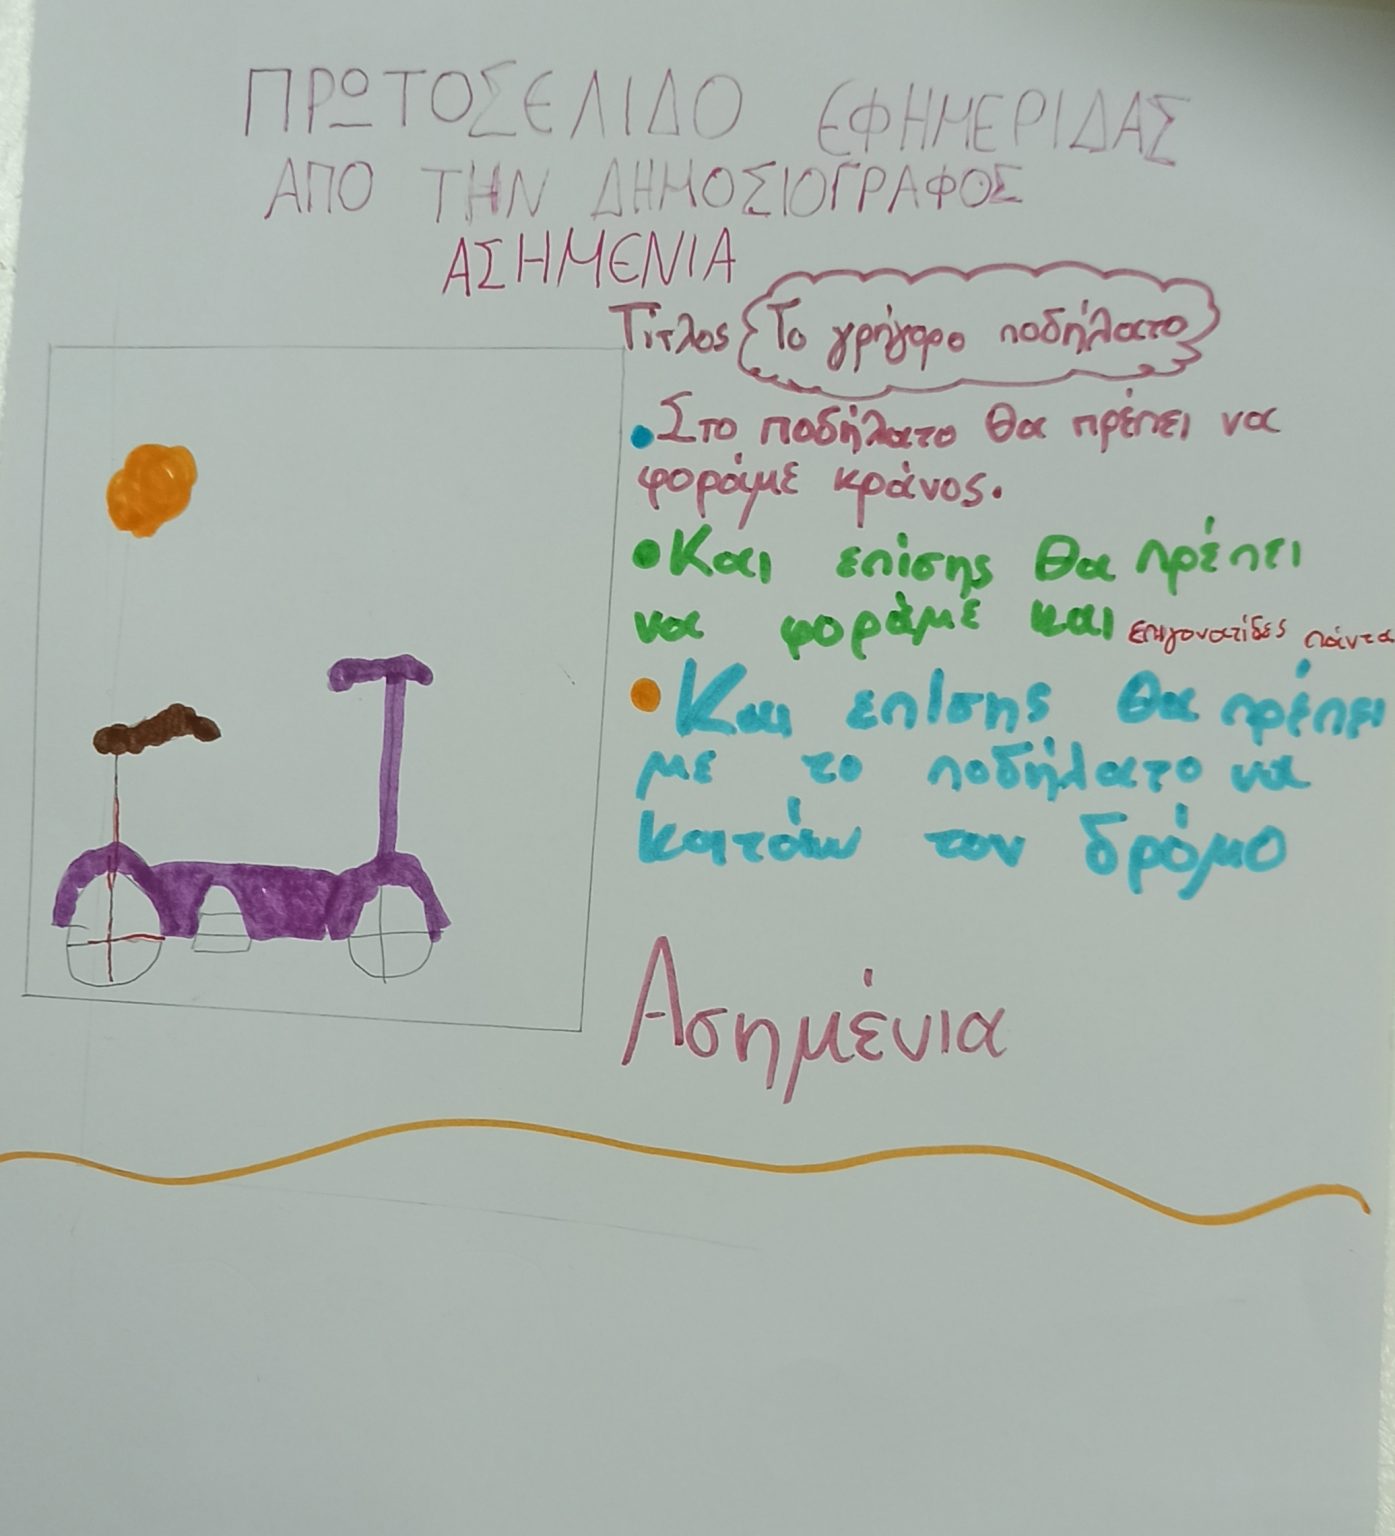 ΠΡΩΤΟΣΕΛΙΔΟ ΕΦΗΜΕΡΙΔΑΣ
ΑΠΟ ΤΗΝ ΔΗΜΟΣΙΟΓΡΑΦΟΣ
ΑΣΗΜΕΝΙΑ
Τίτλος Το γρήγορο ποδήλατο
• Στο ποδήλατο θα πρέπει να
φοράμε κράνος.
• Και επίσης θα πρέπει
να φοράμε και επιγονατίδες πάντα
• Και επίσης θα πρέπει
με το ποδήλατο να
κατάω τον δρόμο
Ασημένια